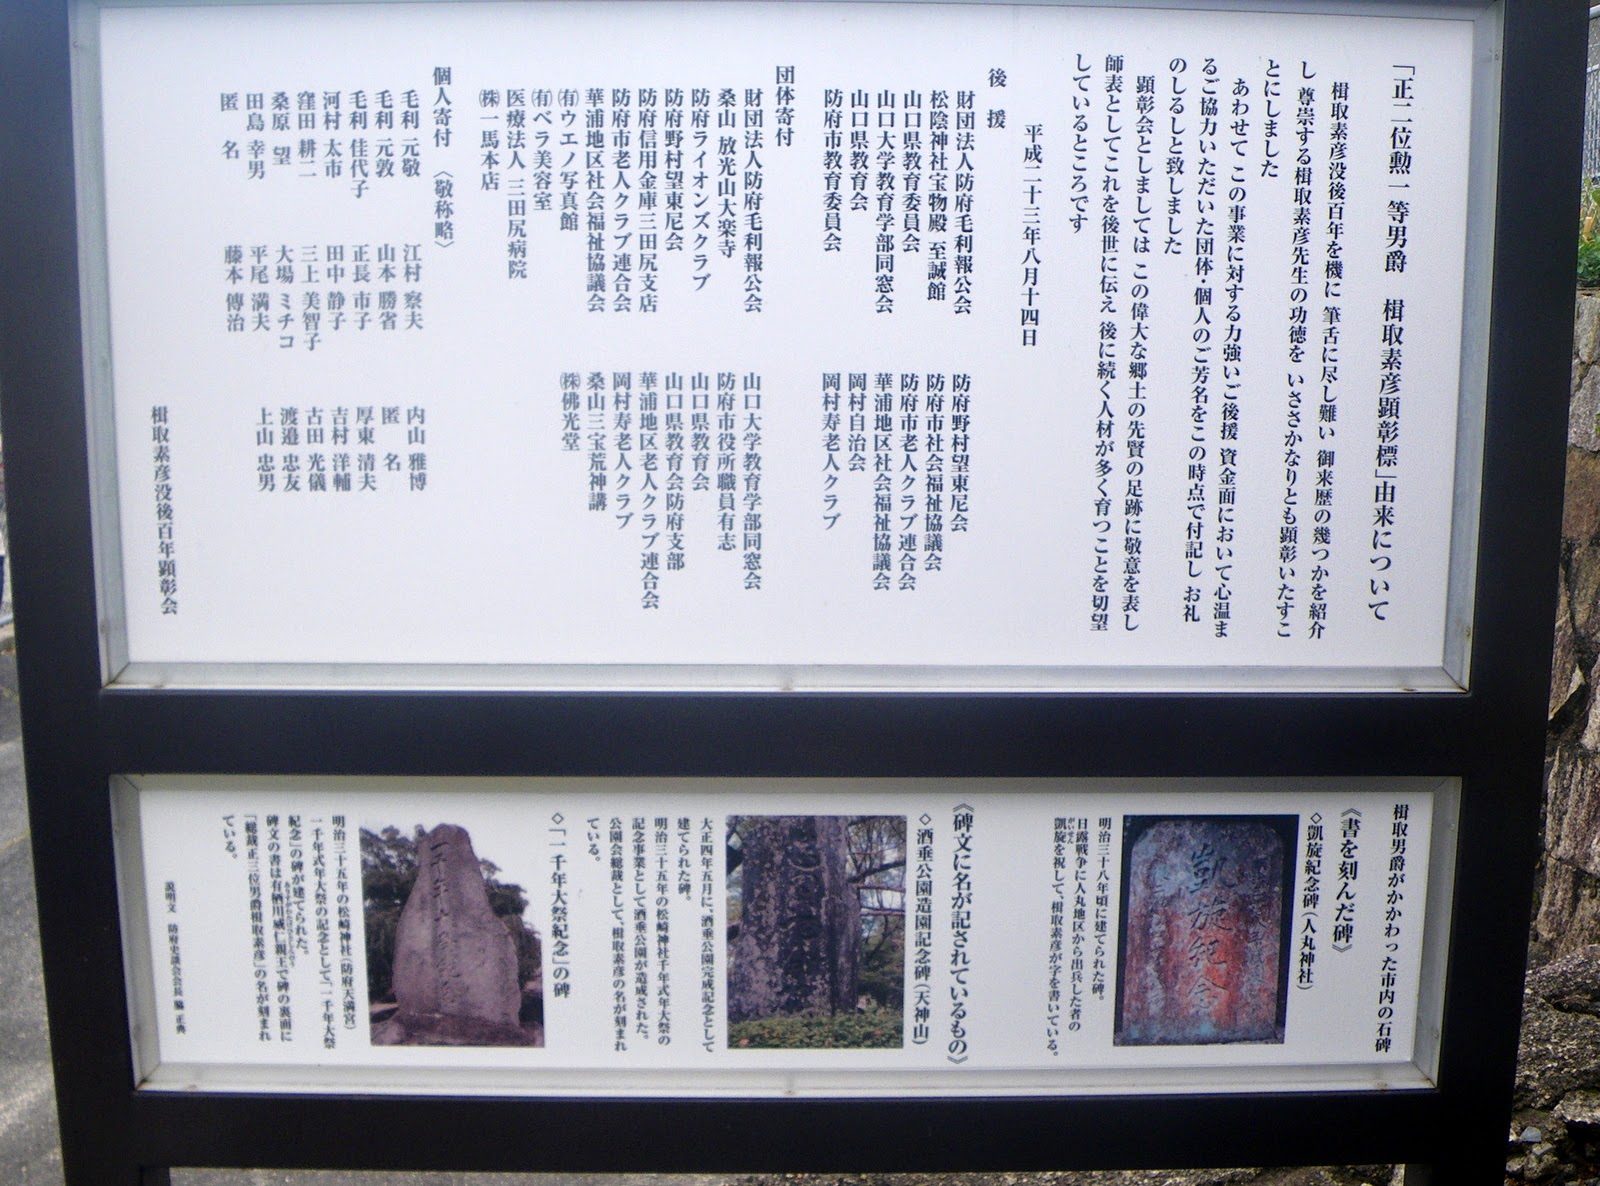 「正二位勲一等男爵　楫取素彦顕彰標」由来について
楫取素彦没後百年を機に 筆舌に尽し難い 御来歴の幾つかを紹介
し 尊崇する楫取素彦先生の功徳を いささかなりとも顕彰いたすこ
とにしました
あわせて この事業に対する力強いご後援 資金面において心温ま
るご協力いただいた団体・個人のご芳名をこの時点で付記し お礼
のしるしと致しました
顕彰会としましては この偉大な郷土の先賢の足跡に敬意を表し
師表としてこれを後世に伝え 後に続く人材が多く育つことを切望
しているところです
平成二十三年八月十四日
後　援
財団法人防府毛利報公会　防府野村望東尼会
松陰神社宝物殿 至誠館　防府市社会福祉協議会
山口県教育委員会　防府市老人クラブ連合会
山口大学教育学部同窓会　華浦地区社会福祉協議会
山口県教育会　岡村自治会
防府市教育委員会　岡村寿老人クラブ
団体寄付
財団法人防府毛利報公会　山口大学教育学部同窓会
桑山 放光山大楽寺　防府市役所職員有志
防府ライオンズクラブ　山口県教育会
防府野村望東尼会　山口県教育会防府支部
防府信用金庫三田尻支店　華浦地区老人クラブ連合会
防府市老人クラブ連合会　岡村寿老人クラブ
華浦地区社会福祉協議会　桑山三宝荒神講
㈲ウエノ写真館　㈱佛光堂
㈲ベラ美容室
医療法人 三田尻病院
㈱一馬本店
個人寄付　〈敬称略〉
毛利 元敬　江村 察夫　内山 雅博
毛利 元敦　山本 勝省　匿　名
毛利 佳代子　正長 市子　厚東 清夫
河村 太市　田中 静子　吉村 洋輔
窪田 耕二　三上 美智子　古田 光儀
桑原 望　大場 ミチコ　渡邉 忠友
田島 幸男　平尾 満夫　上山 忠男
匿　名　藤本 傳治
楫取素彦没後百年顕彰会
楫取男爵がかかわった市内の石碑
《書を刻んだ碑》
◇凱旋紀念碑（人丸神社）
明治三十八年頃に建てられた碑。
日露戦争に人丸地区から出兵した者の
凱旋を祝して、楫取素彦が字を書いている。
がいせん
凱旋紀念
《碑文に名が記されているもの》
◇酒垂公園造園記念碑（天神山）
大正四年五月に、酒垂公園完成記念として
建てられた碑。
明治三十五年の松崎神社千年式年大祭の
記念事業として酒垂公園が造成された。
公園会総裁として、楫取素彦の名が刻まれ
ている。
◇「一千年大祭紀念」の碑
明治三十五年の松崎神社（防府天満宮）
一千年式年大祭の記念として、「一千年大祭
紀念」の碑が建てられた。
碑文の書は有栖川威仁親王で碑の裏面に
「総裁正三位男爵楫取素彦」の名が刻まれ
ている。
説明文　防府史談会会長　脇　正典